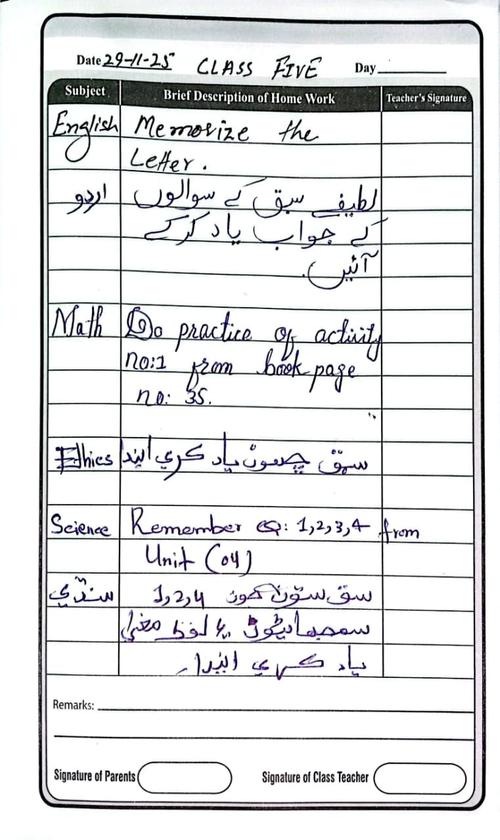 Date 29-11-25 CLASS FIVE Day
Subject Brief Description of Home Work Teacher's Signature
English Memorize the
Letter.
اردو لطیفے سبق کے سوالوں
کے جواب یاد کرکے
آئیں.
Math Do practice of activity
no:1 from book page
no: 35.
Ethics سبق ڇھون ياد ڪري ايندا
Science Remember Q: 1,2,3,4 from
Unit (04)
سنڌي سبق ستون 1,2,4
۽ لفظ معنيٰ
ياد ڪري ايندا.
Remarks:
Signature of Parents Signature of Class Teacher